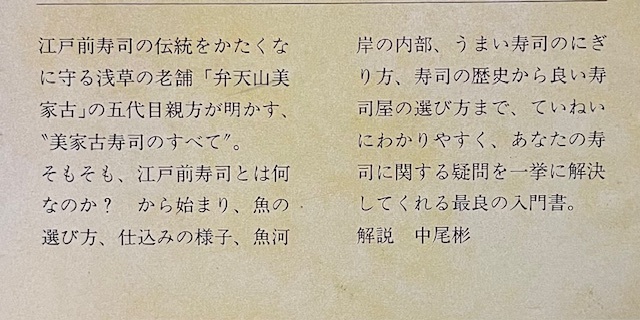 江戸前寿司の伝統をかたくな
に守る浅草の老舗「弁天山美
家古」の五代目親方が明かす、
〝美家古寿司のすべて〟。
そもそも、江戸前寿司とは何
なのか？　から始まり、魚の
選び方、仕込みの様子、魚河
岸の内部、うまい寿司のにぎ
り方、寿司の歴史から良い寿
司屋の選び方まで、ていねい
にわかりやすく、あなたの寿
司に関する疑問を一挙に解決
してくれる最良の入門書。
解説　中尾彬